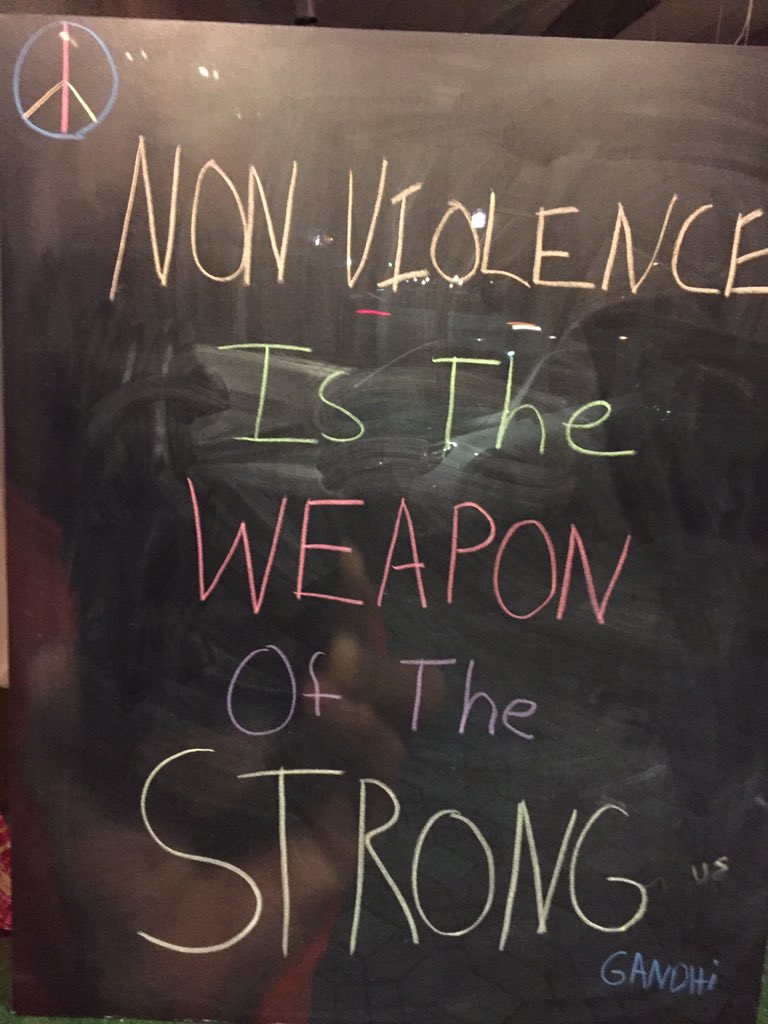 NON VIOLENCE
Is The
WEAPON
Of The
STRONG
us
GANDHi